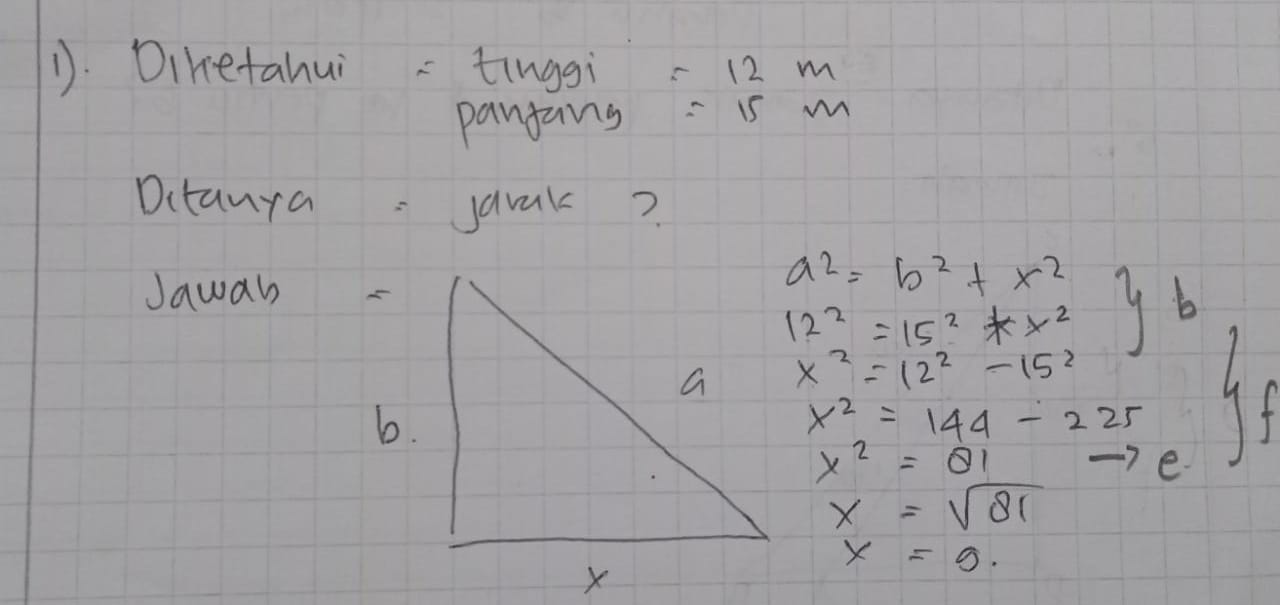 1). Diketahui = tinggi = 12 m
panjang = 15 m
Ditanya = jarak ?
Jawab =
b.
a
x
a² = b² + x² } b
12² = 15² + x²
x² = 12² - 15²
x² = 144 - 225 } f
x² = 81 → e
x = √81
x = 9.